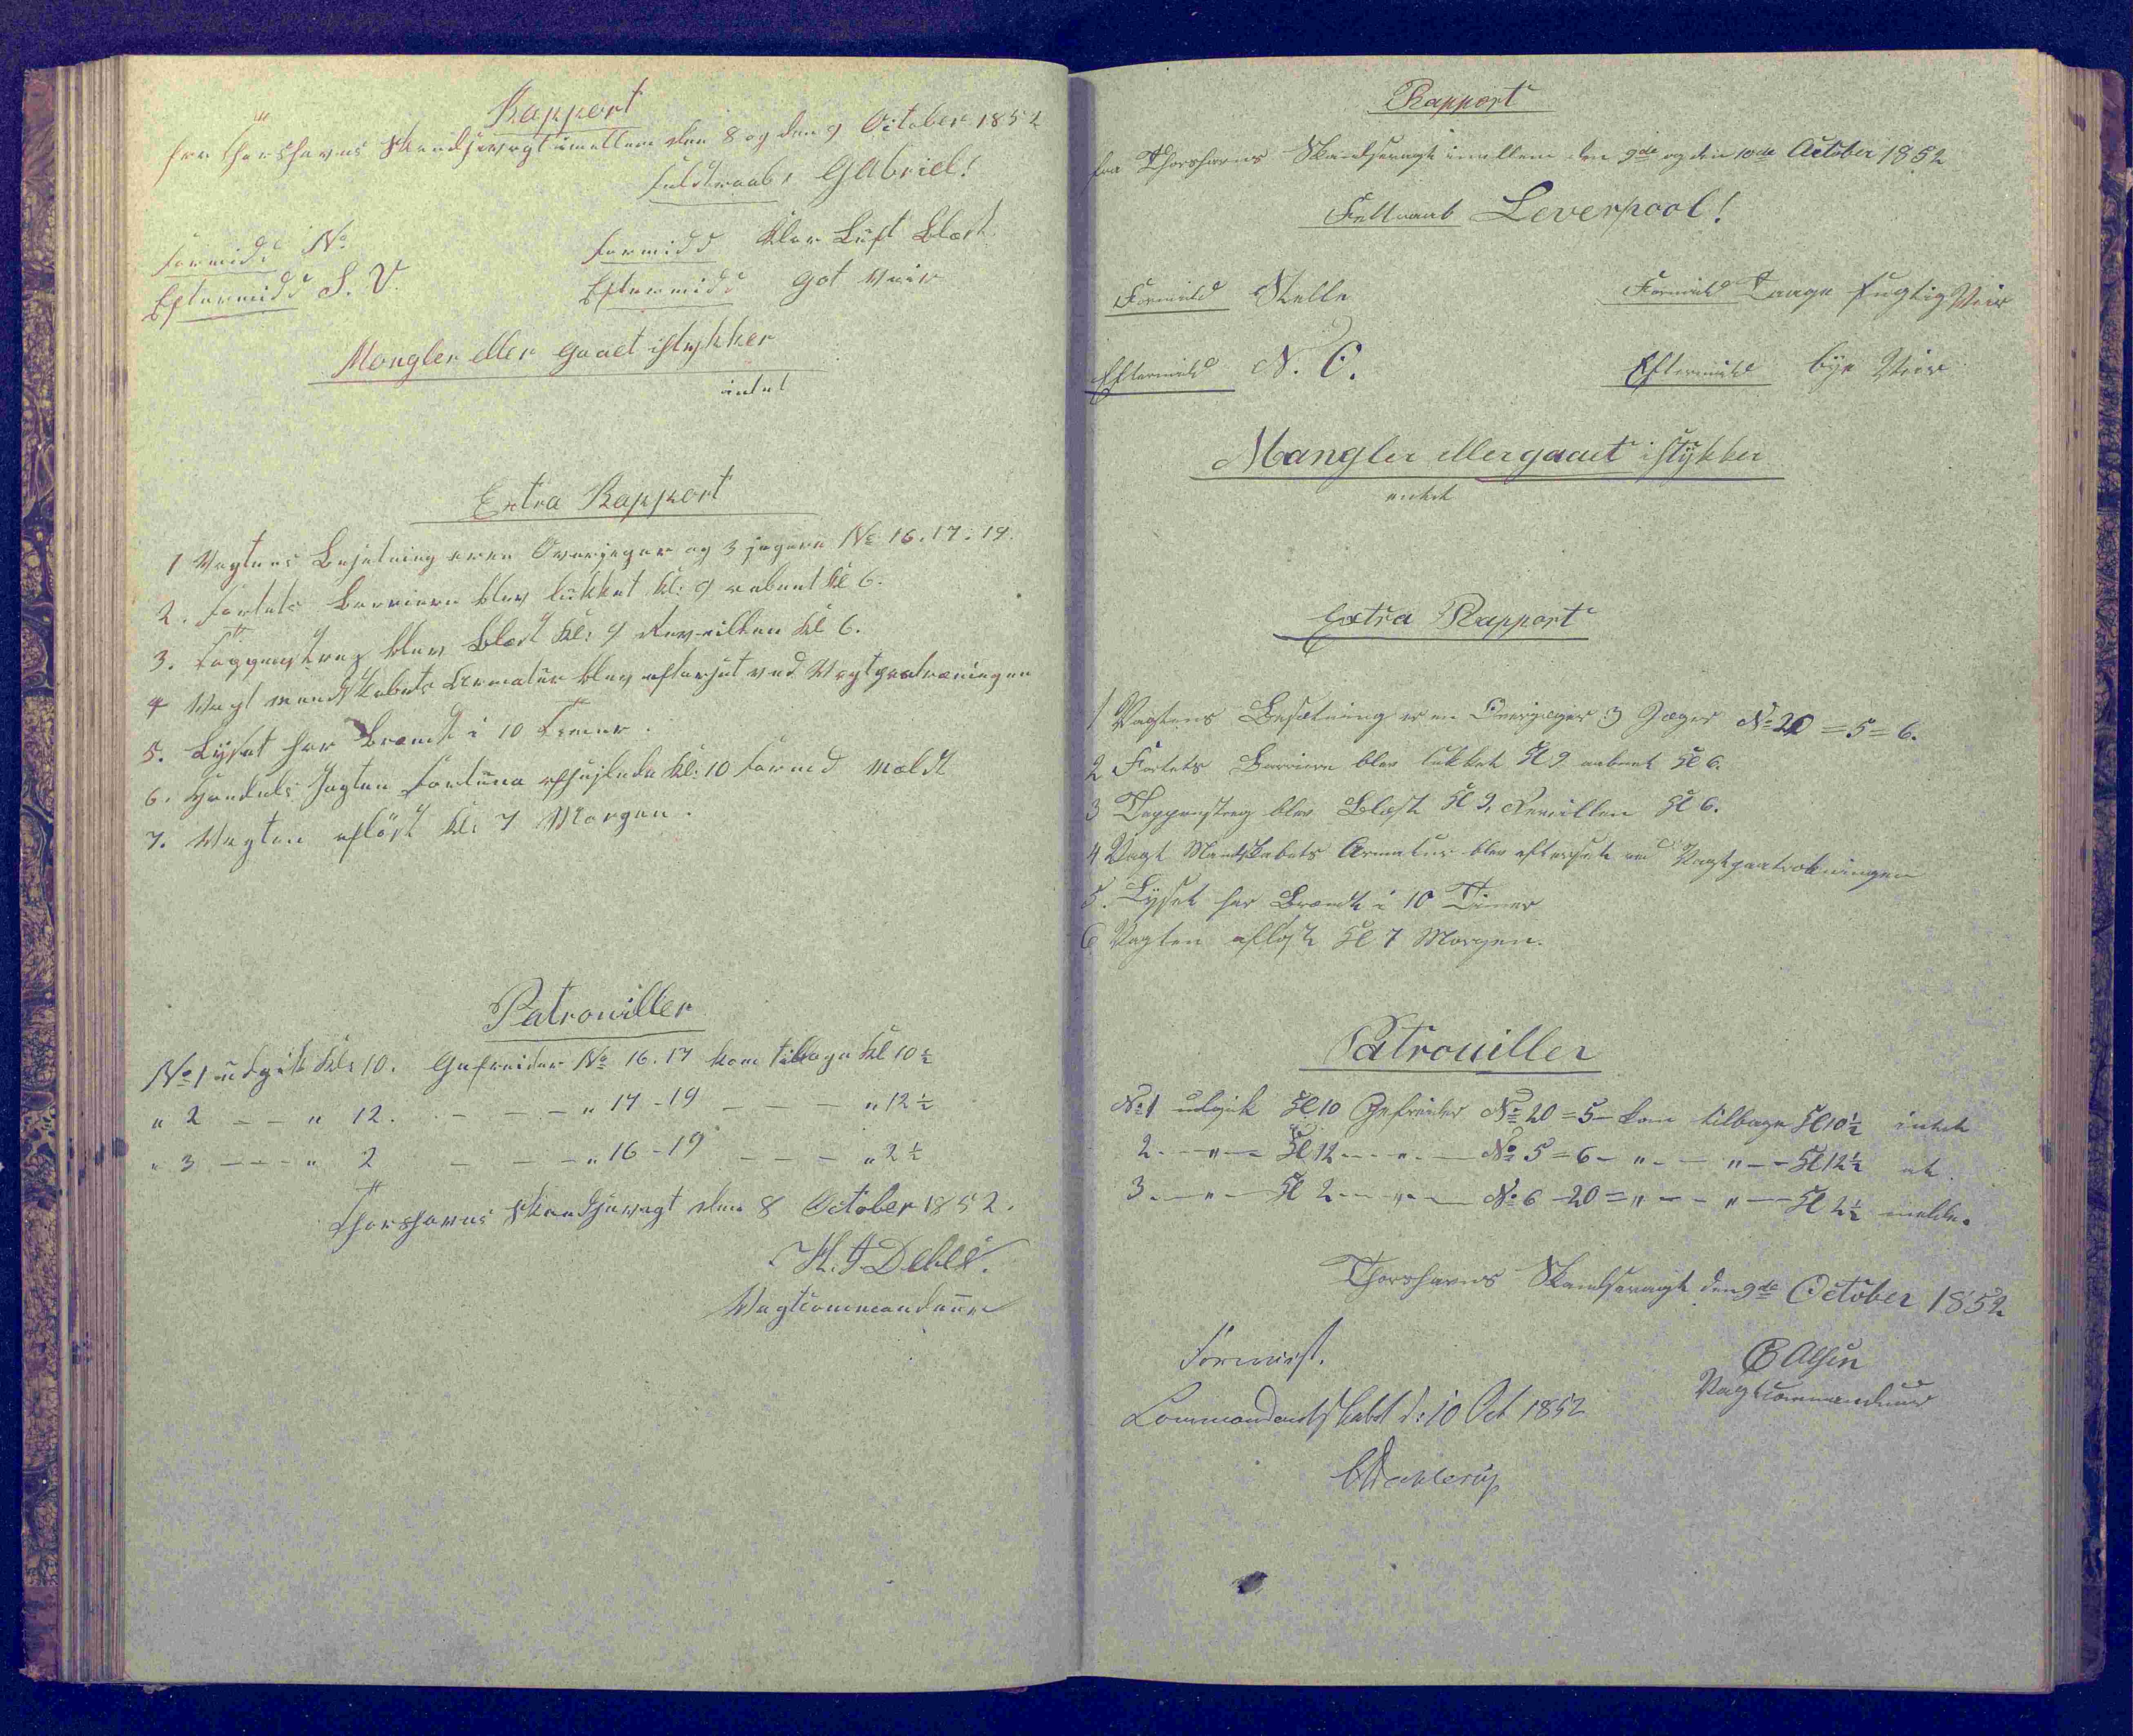 Rapport
fra Thorshavns Skandsevagt imellem den 8 og den 9 October 1852
Feldtraab, Gabriel!
Formidd: No
Eftermidd S. V.
Formidd Klar Luft Blæst
Eftermidd got Veir
Mangler eller gaaet istykker
intet
Extra Rapport
1 Vagtens Besetning er en Overjeger og 3 jegere No 16. 17. 19.
2. Fortets Barriere blev lukket Kl: 9 aabnet Kl 6.
3. Tappenstreg blev Blæst Kl: 9 Reveillen Kl 6.
4 Vagt mandskabets Armatur blev efterset ved Vagtparatræningen
5. Lyset har Brændt i 10 Timer.
6. Handels Jagten Fortuna afsejlede Kl: 10 Formd meldt
7. Vagten afløst Kl: 7 Morgen.
Patrouiller
No 1 udgik Kl: 10. Gefreider No 16. 17 kom tilbage Kl 10½
" 2 — — " 12. — — — " 17 - 19 — — — " 12½
" 3 — — — " 2 — — — " 16 - 19 — — — " 2½
Thorshavns Skandsevagt den 8 October 1852.
Vagtcommandeur
Rapport
fra Thorshavns Skandsevagt imellem den 9de og den 10de October 1852
Feltraab Leverpool!
Formidd Stelle
Formidd Taage fugtig Veir
Eftermidd N. O.
Eftermidd bye Veir
Mangler eller gaaet istykker
intet
Extra Rapport
1 Vagtens Besætning er en Overjæger 3 Jæger No 20 = 5 = 6.
2 Fortets Barriere blev lukket Kl 9 aabnet Kl 6.
3 Tappenstreg blev Blæst Kl 9, Reveillen Kl 6.
4 Vagt Mandskabets Armatur blev efterset ved Vagtparatrækningen
5. Lyset har Brændt i 10 Timer
6 Vagten afløst Kl 7 Morgen.
Patrouiller
No 1 udgik Kl 10 Gefreider No 20 = 5 — kom tilbage Kl 10½ intet
2 - — " — Kl 12 - — " — No 5 = 6 — " — — " — Kl 12½ at
3 - — " — Kl 2 - — " — No 6 - 20 = " — — " — Kl 2½ melde.
Thorshavns Skandsevagt den 9de October 1852
B Olsen
Vagtcommandeur
Forevist.
Commandantskabet d: 10 Oct 1852
CDahlerup